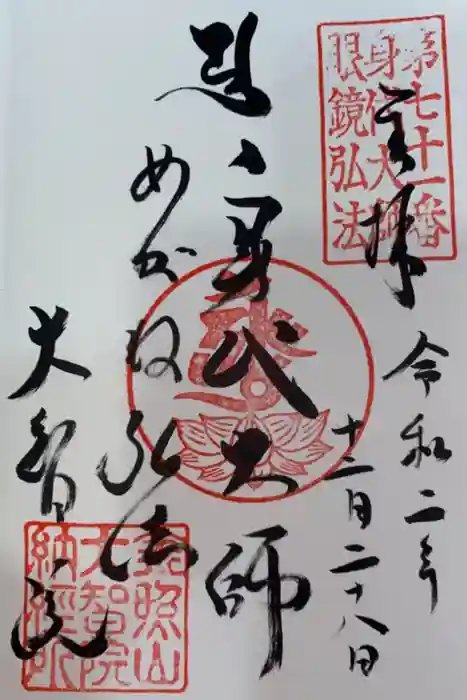 第七十一番
身代大師
眼鏡弘法
奉拝
令和二年
十二月二十八日
身代大師
めがね弘法
大智院
金照山
大智院
納経所